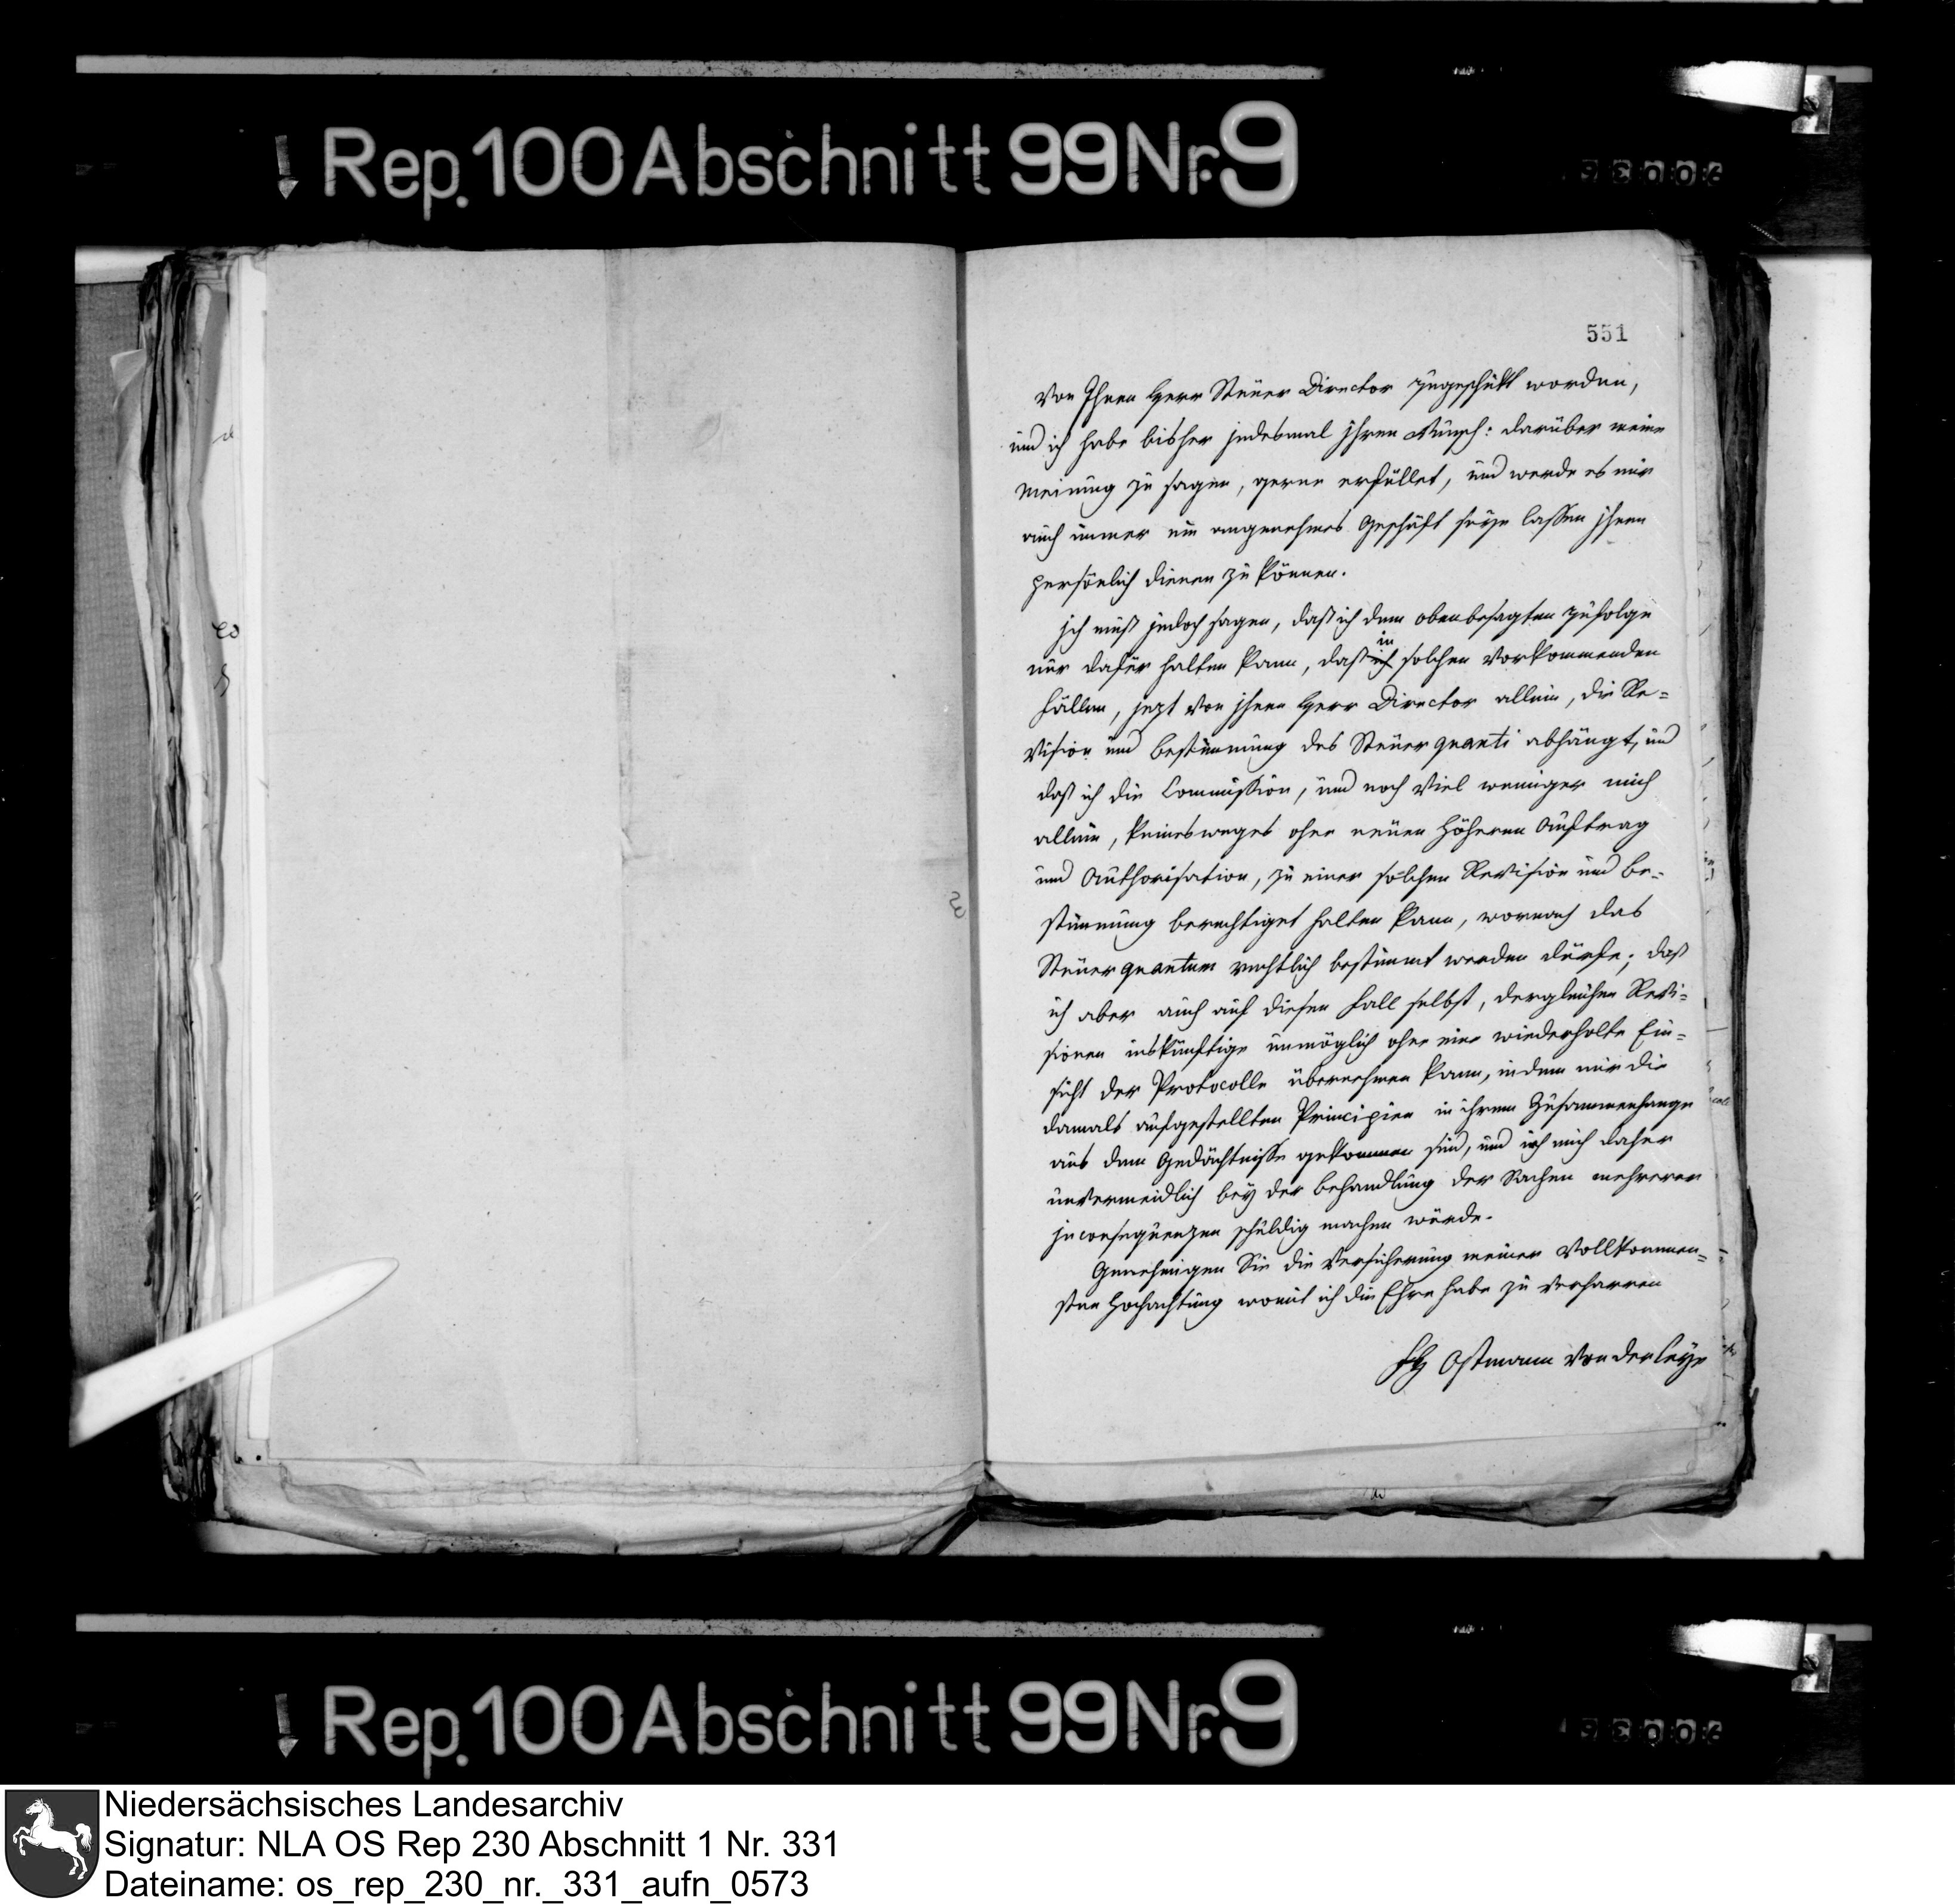 Rep. 100 Abschnitt 99 Nr. 9
551
von Ihnen Herr Steuer Director zugeschickt worden,
und ich habe bisher jedesmal ihren Wunsch: darüber meine
Meinung zu sagen, gerne erfüllet, und werde es mir
auch immer ein angenehmes Geschäft seyn lassen ihnen
persönlich dienen zu können.
Ich muß jedoch sagen, daß ich dem obenbesagten zufolge
in
nur dafür halten kann, daß ich solchen vorkommenden
Fällen, jezt von ihnen Herr Director allein, die Re=
vision und Bestimmung des Steuerquanti abhängt, und
daß ich die Commission, und noch viel weniger mich
allein, keinesweges ohne neuen höheren Auftrag
und Authorisation, zu einer solchen Revision und Be=
stimmung berechtiget halten kann, wornach das
Steuerquantum rechtlich bestimmt werden dürfe; daß
ich aber auch auf diesen Fall selbst, dergleichen Revi=
sionen inskünftige unmöglich ohne eine wiederholte Ein=
sicht der Protocolle übernehmen kann, indem mir die
damals aufgestellten Principien in ihrem Zusammenhange
aus dem Gedächtnisse gekommen sind, und ich mich daher
unvermeidlich bey der Behandlung der Sachen mehrerer
Inconsequenzen schuldig machen würde.
Genehmigen Sie die Versicherung meiner vollkommen=
sten Hochachtung womit ich die Ehre habe zu verharren
Ostmann von der Leye
Rep. 100 Abschnitt 99 Nr. 9
Niedersächsisches Landesarchiv
Signatur: NLA OS Rep 230 Abschnitt 1 Nr. 331
Dateiname: os_rep_230_nr._331_aufn_0573